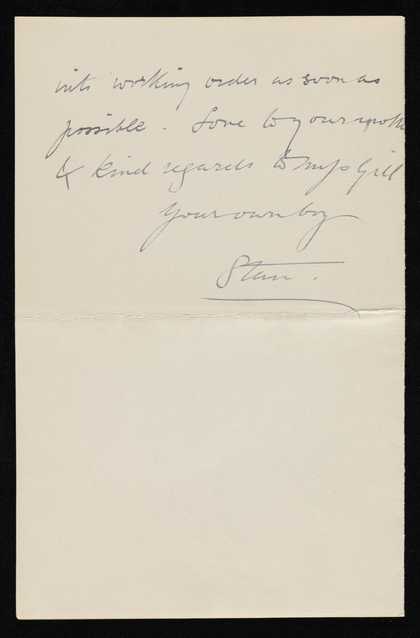 into working order as soon as
possible. Love to your
& kind regards to Miss Gill
Your own boy
Stan.